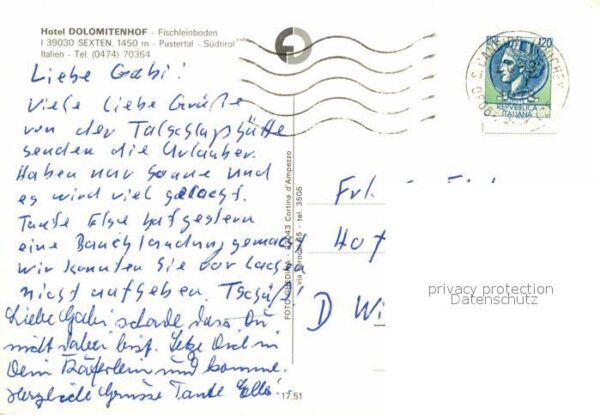 Hotel DOLOMITENHOF - Fischleinboden
I 39030 SEXTEN, 1450 m - Pustertal - Südtirol
Italien - Tel. (0474) 70364
Liebe Gabi!
Viele liebe Grüße
von der Talschlußhütte
senden die Urlauber.
Haben nur Sonne und
es wird viel gelacht.
Tante Else hat gestern
eine Bauchlandung gemacht
wir konnten Sie vor Lachen
nicht aufheben. Tschüß!
Liebe Gabi schade dass Du
nicht dabei bist. Setze Dich in
Dein Käferlein und komme.
Herzliche Grüsse Tante Elli!
Cortina d'Ampezzo
tel. 3505
17.51
120
ITALIANA
Frl.
Hof
D Wi
privacy protection
Datenschutz